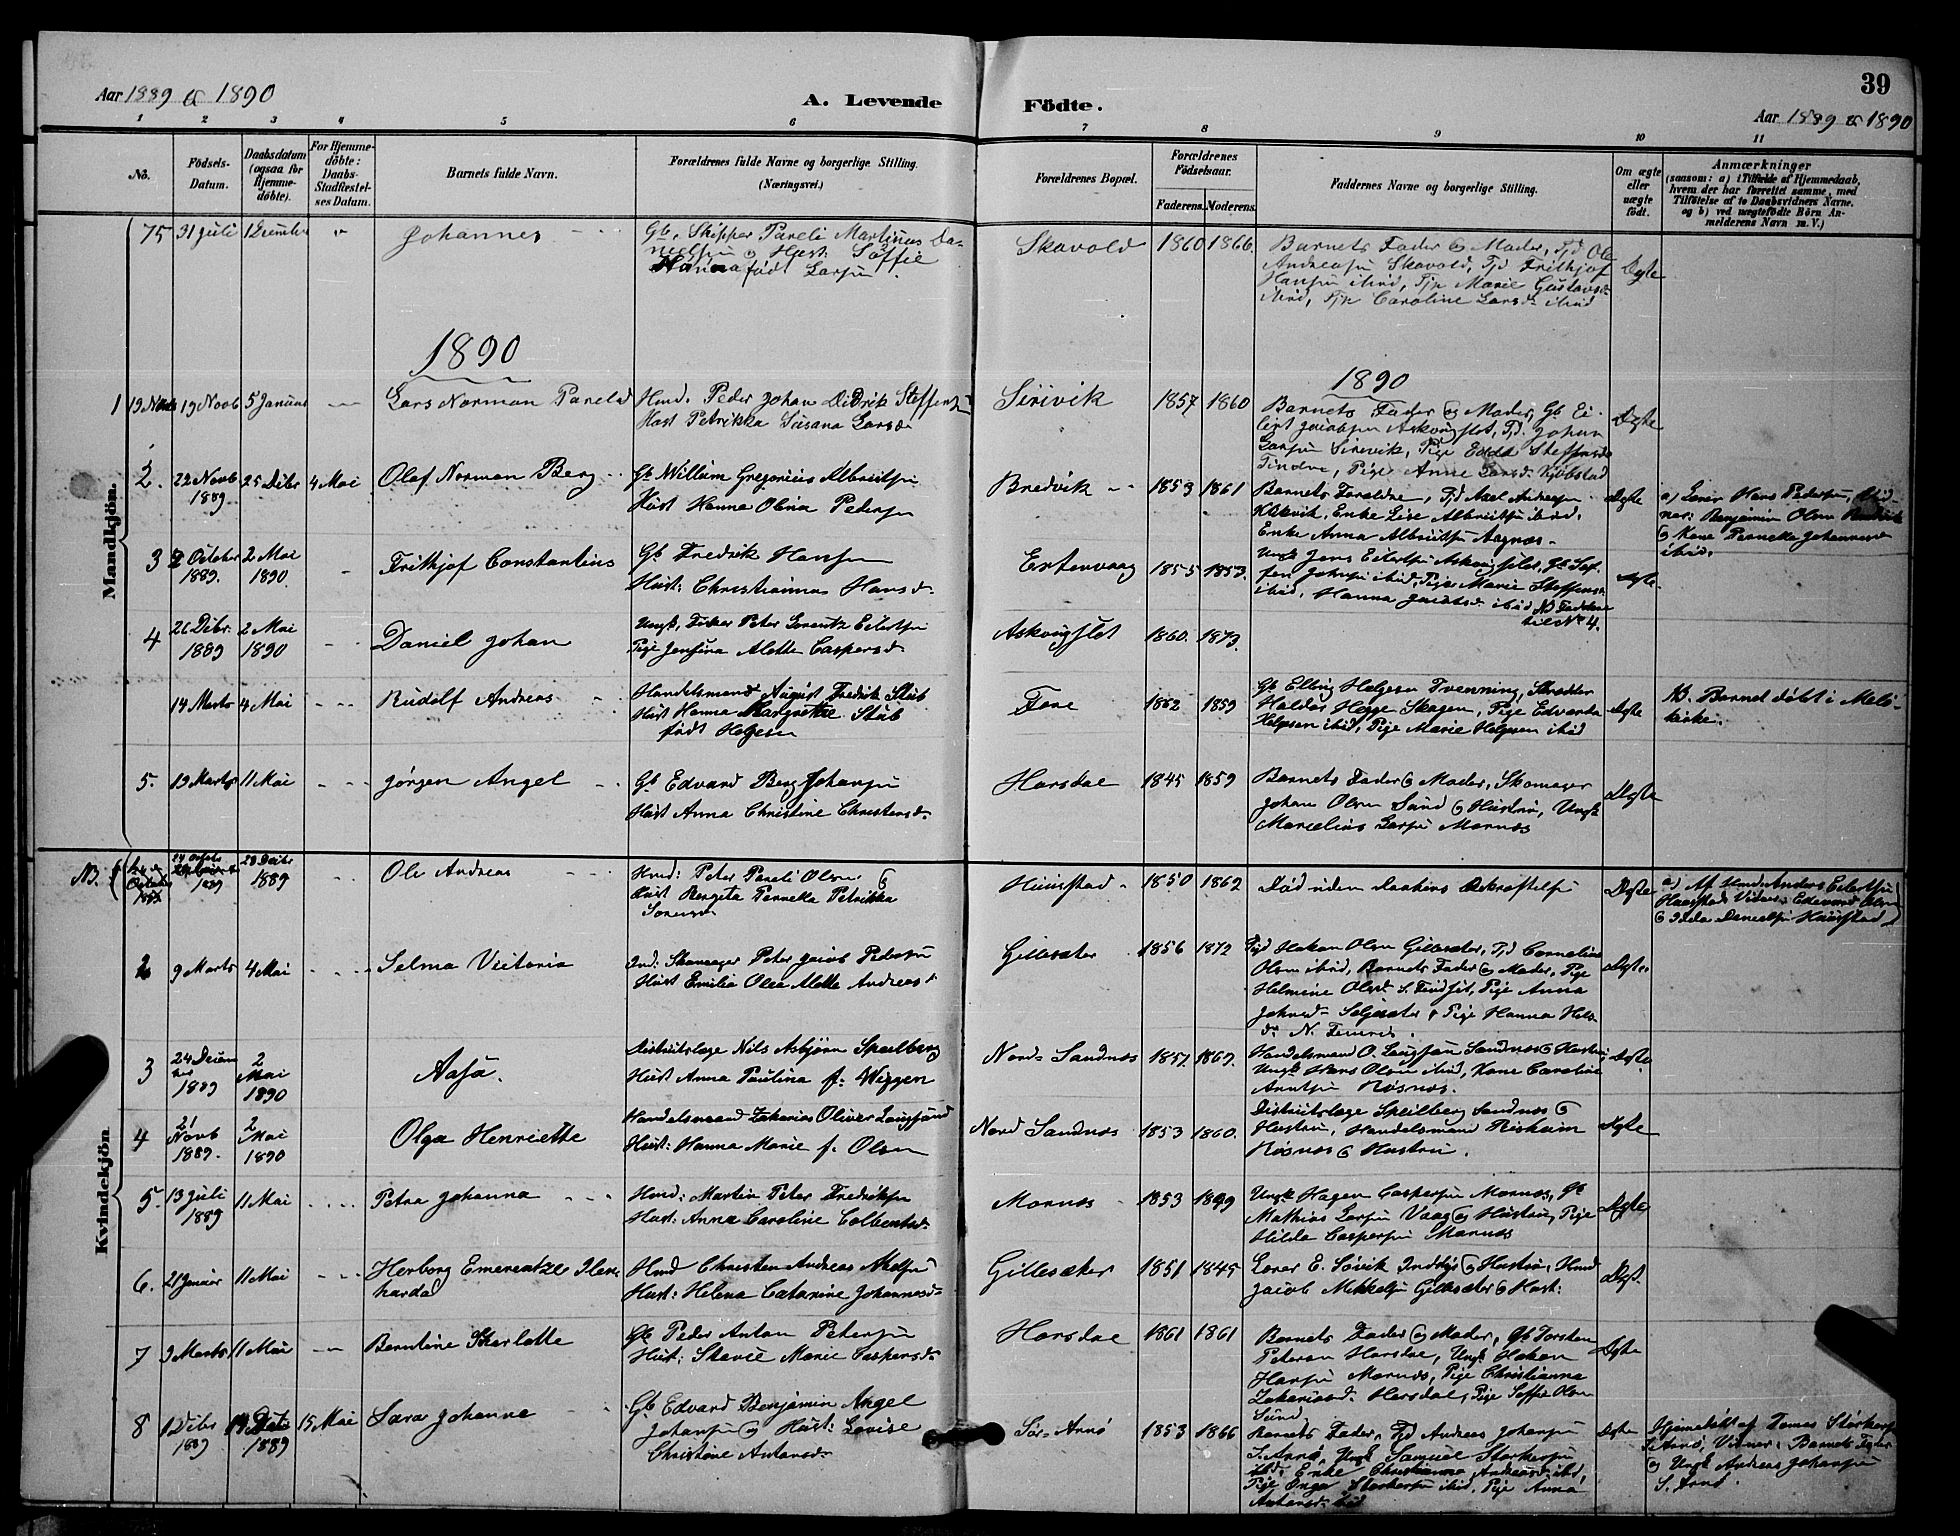 39
Aar 1889 & 1890
A. Levende Födte.
Aar 1889 & 1890
1 2 3 4 5 6 7 8 9 10 11
No.
Födsels-Datum.
Daabsdatum (ogsaa for Hjemmedöbte).
For Hjemmedöbte: Daabs-Stadfæstelses Datum.
Barnets fulde Navn.
Forældrenes fulde Navne og borgerlige Stilling. (Næringsvei.)
Forældrenes Bopæl.
Forældrenes Födselsaar.
Faderens. Moderens.
Faddernes Navne og borgerlige Stilling.
Om ægte eller uægte födt.
Anmærkninger
(saasom: a) i Tilfælde af Hjemmedaab,
hvem der har forrettet samme, med
Tilföielse af to Daabsvidners Navne,
og b) ved uægtefödte Börn Anmelderens Navn m. V.)
Mandkjön.
75 31 Juli 1 December " Johannes
Gb. Skipper Pareli Martinus Da-
nielsen og Hust. Soffie
Hanna født Larsen.
Skavold 1860 1866
Barnets Fader og Moder, Tjd Ole
Andreasen Skavold, Tjd Frithjof
Hansen ibid, Tjp Marie Gustavsd.
ibid, Tjp Caroline Larsd. ibid
Ægte
1890
1890
1 19 Novb 5 Januar Lars Norman Pareli
Hmd. Peder Johan Didrik Steffensen
Hust Petrikka Susana Larsd.
Sirivik 1857 1860
Barnets Fader og Moder, Gb. Ei-
lert Jacobsen Askvigslet, Tjd. Johan
Larsen Sirevik, Pige Steffensd.
Pige Anne Larsd.
Ægte
2. 22 Novb 1889 25 Dcbr 4 Mai Olaf Norman Berg
Gb William Gregorius Albrigtsen
Hust Hanna Olina Pedersen
Bredvik 1859 1861
Barnets Forældre, Tjd Axel Andreasen
Enke Lise Albrigtsen ibid,
Enke Anna Albrigtsen Aagnæs.
Ægte
a) Lærer Hans Pedersen, Vid-
ner: Benjamin Olsen Bredvik
og Kone Pernella Johannesd.
ibid.
3 October 1889. 2 Mai 1890. Frithjof Constantins
Gb Fredrik Hansen
Hust: Christianna Hansd.
Estervaag 1855 1853.
Ungk Jens Eilertsen Askvigslet, Gb. Stef-
fen Johnsen ibid, Pige Marie Steffensd.
ibid, Hanna ibid NB Faddere
til No 4.
Ægte.
4 26 Dcbr. 1889 2 Mai 1890 Daniel Johan
Ungk, Fisker Peter Lorentz Eilertsen
Pige Jensina Alette Caspersd.
Askvigslet 1860. 1873.
14 Marts 4 Mai Rudolf Andreas
Handelsmand August Fredrik Stub
Hust Hanna Margrethe Stub
født Helgesen
Fore 1862 1859
Gb. Elling Helgesen Tvenning, Skræder
Haldor Hegge Skagen, Pige Edvarda
Helgesen ibid, Pige Marie Helgesen ibid
Ægte
NB. Barnet døbt i Melø
kirke.
5. 19 Marts 11 Mai Jørgen Angel
Gb Edvard Berg Johansen
Hust Anna Christine Christensd.
Horsdal 1845 1859
Barnets Fader og Moder, Skomager
Johan Olsen Sund og Hustru, Ungk
Marcelius Larsen Mornæs
Ægte
Kvindekjön
NB. 1 24 October 1889 29 Decbr 1889 Ole Andreas
Hmd: Peter Pareli Olsen og
Hust Bergita Pernella Petrikka
Sørensd.
Huustad 1850 1862
Død uden Daabens Bekræftelse
Ægte
a) Af Hmd. Anders Eilertsen
Haastad Vidner: Edevard Olsen
og Danielsen Huustad
2 9 Marts 4 Mai Selma Victoria
Ind: Skomager Peter Jacob Pedersen
Hust Emilie Olea Alette Andreasd.
Gillesæter 1856 1872
Tjd Hakon Olsen Gillesæter, Tjd Cornelius
Olsen ibid, Barnets Fader og Moder, Pige
Helmine Olsd. S. Finsset, Pige Anna
Johnsd. Selgesæter, Pige Hanna
N. Femris.
Ægte.
3 24 December 1889 2 Mai 1890 Aasa.
Districtslæge Nils Asbjørn Speilberg
Hust Anna Paulina f. Wiggen
Nord-Sandnæs 1857. 1869.
Handelsmand O. Langsund Sandnæs og Hustru
Ungk Hans Olsen ibid, Kone Caroline
Arntsen Røsnæs.
Ægte.
4 21 Novb 1889. 2 Mai 1890 Olga Henriette
Handelsmand Zakarias Oliver Langsund
Hust: Hanna Marie f. Olsen
Nord Sandnæs 1853 1860.
Districtslæge Speilberg Sandnæs og
Hustru, Handelsmand
Røsnæs og Hustru.
Ægte
5. 13 Juli 1889 11 Mai Petra Johanna
Hmd: Martin Peter Fredriksen
Hust: Anna Caroline Colbentsd.
Mornæs 1853 1849
Ungk Hagen Caspersen Mornæs, Gb
Mathias Larsen Vaag og Hustru, Pige
Hilda Caspersen Mornæs
Ægte
6. 21 Januar 11 Mai Herborg Emerentze
harda
Hmd Christen Andreas Axelsen
Hust: Helena Catarine Johannesd.
Gillesæter 1851 1845
Lærer E. Søvik Inddyr og Hustru, Hmd
Jacob Mikkelsen Gillesæter og Hust:
Ægte.
7 9 Marts 11 Mai Berntine Skarlotte
Gb Peder Anton Petersen
Hust: Stavie Marie Caspersd.
Horsdal 1861 1861
Barnets Fader og Moder, Gb Torsten
Petersen Horsdal, Ungk Hakon
Hansen Mornæs, Pige Christianna
Zakariasd. Horsdal, Pige Soffie Olsen
Sund
Ægte
8 1 Dcbr 1889 Dcbr 1889 15 Mai Sara Johanna
Gb Edvard Benjamin Angel
Johansen og Hust: Lovise
Christine Antonsd.
Sør-Arnø 1853 1866
Barnets Fader, Tjd Andreas Johansen
S. Arnø, Ungk Samuel Storkersen
ibid, Enke Christianna Andreasd. ibid,
Pige Inga Storkersen ibid, Pige Anna
Antonsd. ibid
Ægte
Hjemmedøbt af Tomas Storkersen
S. Arnø, Vidner: Barnets Fader
og Ungk Andreas Johansen
S. Arnø